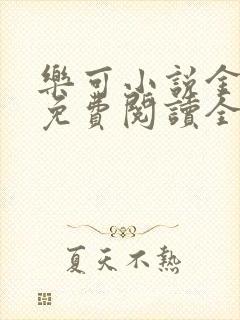 樂可小說全
免費閱讀全
夏天不熱